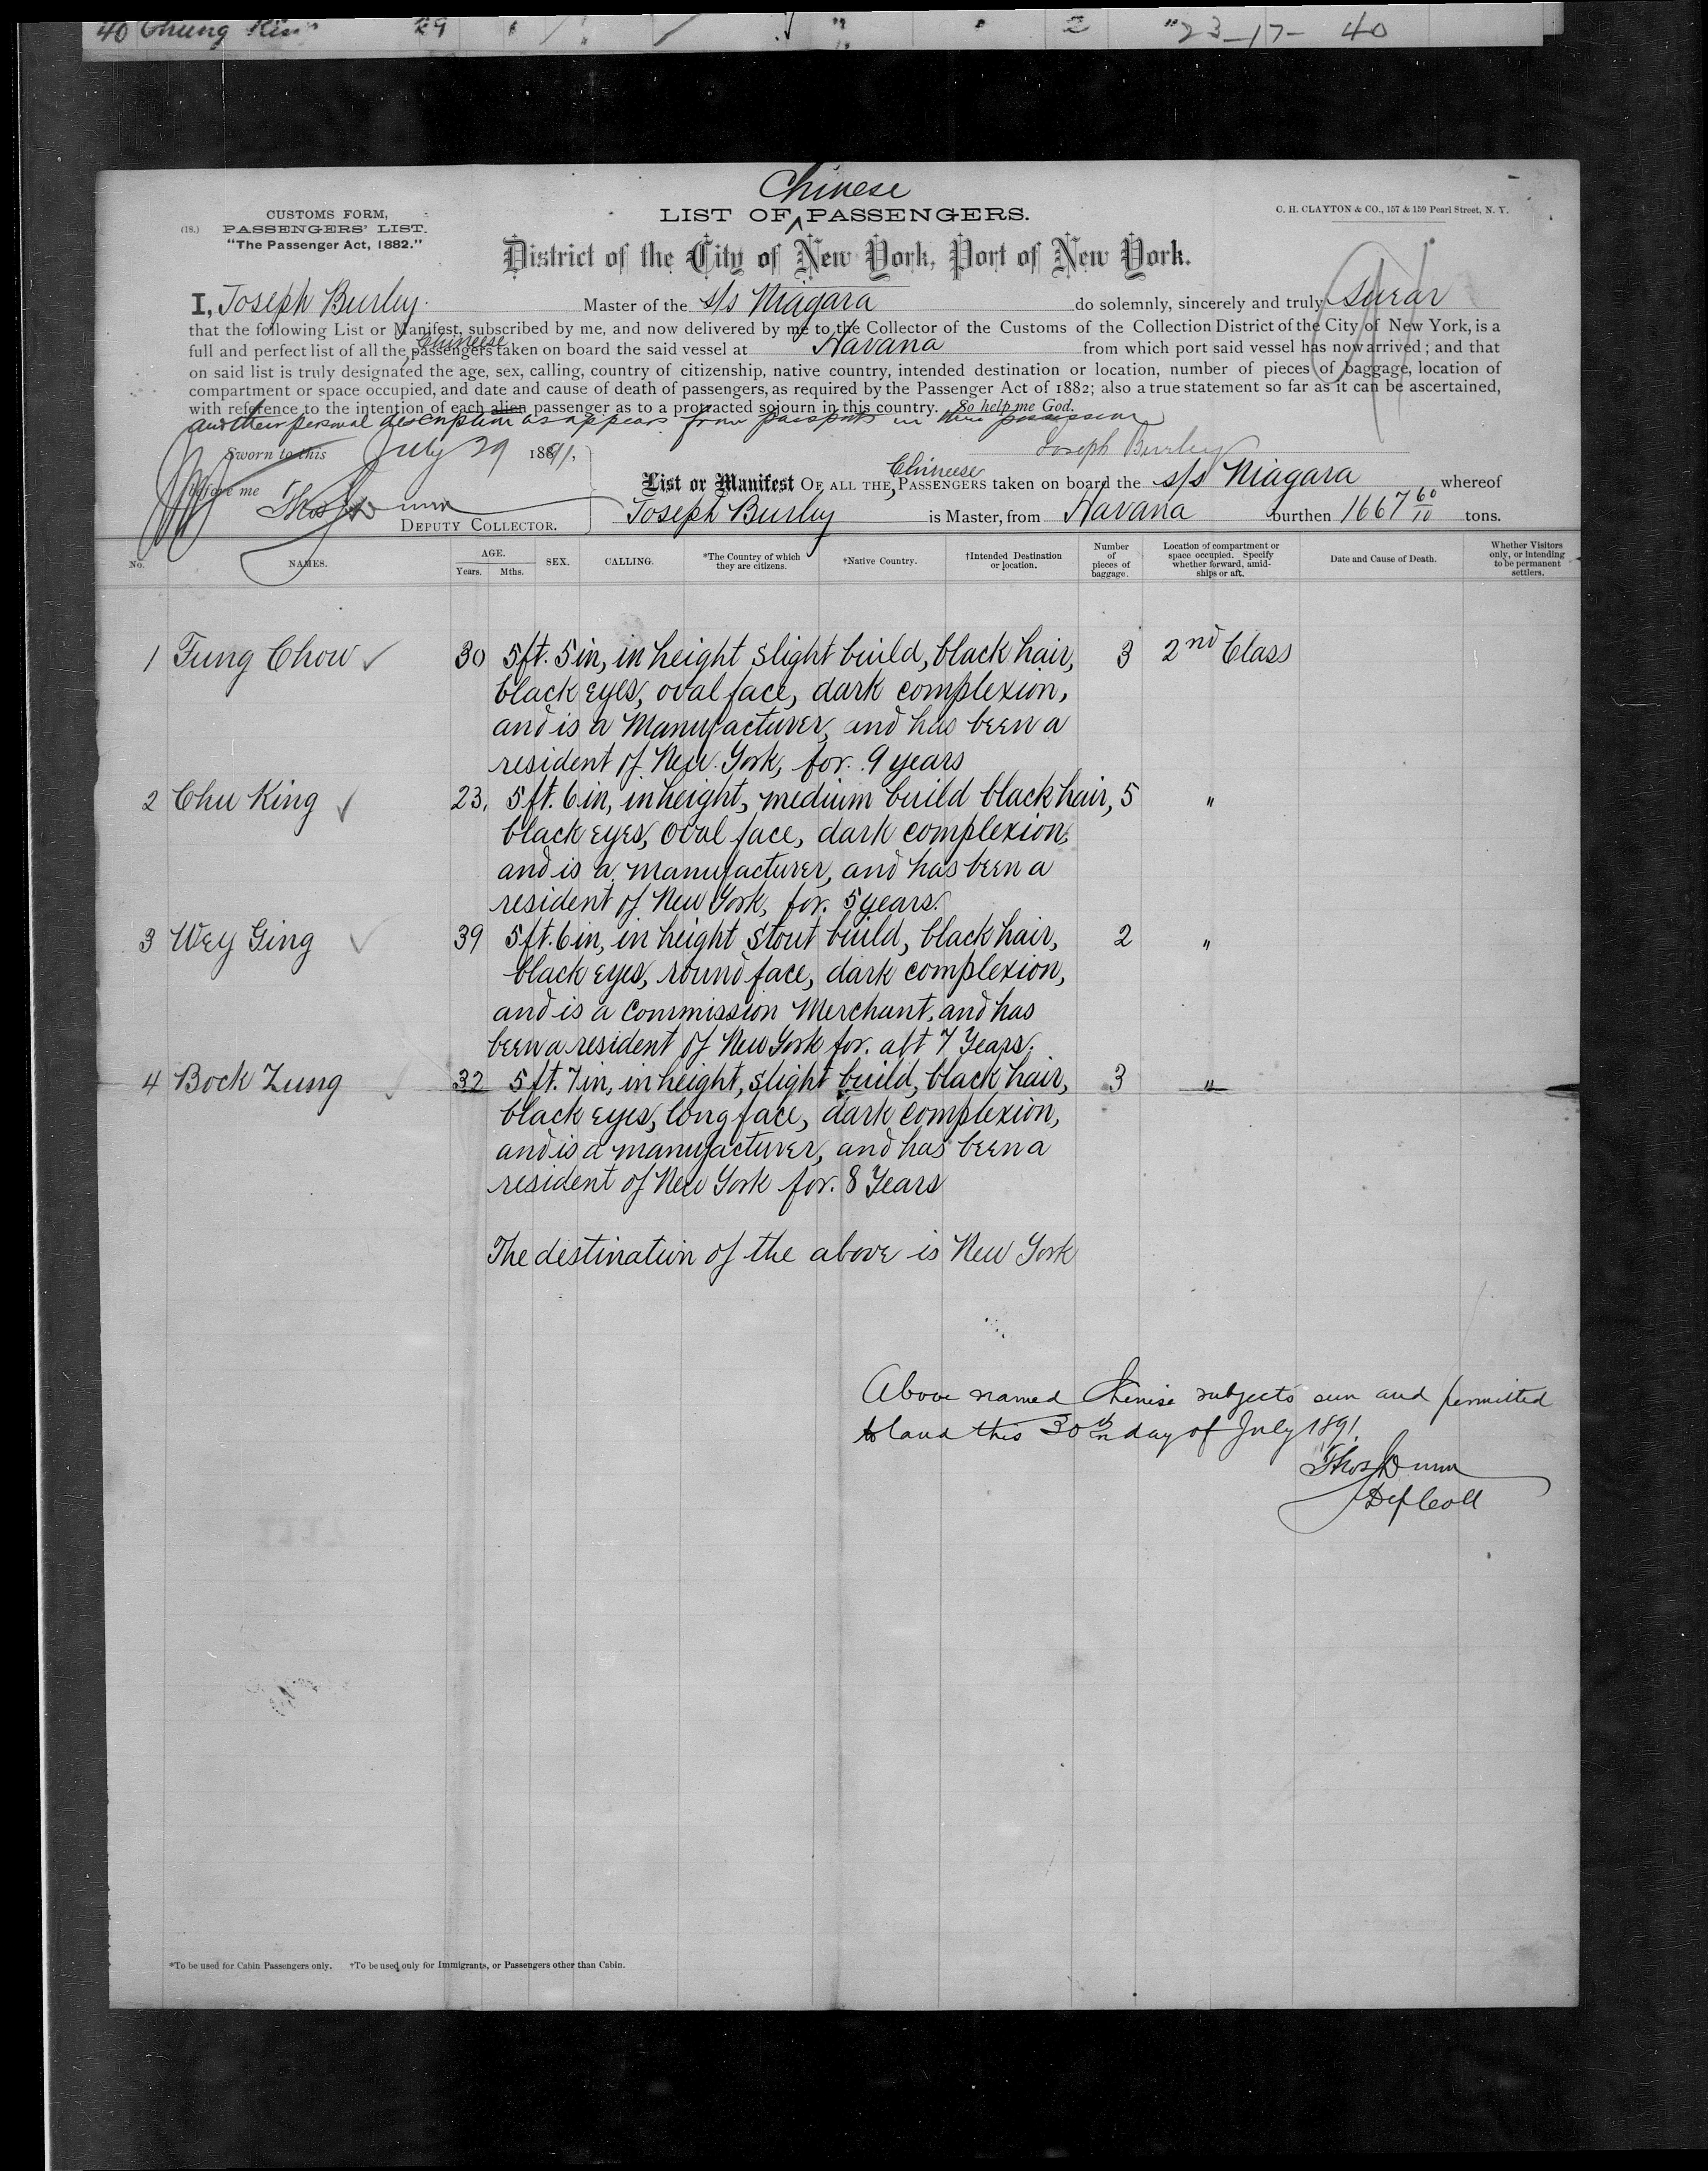 40 Chung 29 " 2 "23-17- 40
Chinese
CUSTOMS FORM,
(18.) PASSENGERS' LIST.
"The Passenger Act, 1882."
LIST OF PASSENGERS.
C. H. CLAYTON & CO., 157 & 159 Pearl Street, N. Y.
District of the City of New York, Port of New York.
I, Joseph Burley. Master of the s/s Niagara do solemnly, sincerely and truly swear
that the following List or Manifest, subscribed by me, and now delivered by me to the Collector of the Customs of the Collection District of the City of New York, is a
full and perfect list of all the Chineese passengers taken on board the said vessel at Havana from which port said vessel has now arrived; and that
on said list is truly designated the age, sex, calling, country of citizenship, native country, intended destination or location, number of pieces of baggage, location of
compartment or space occupied, and date and cause of death of passengers, as required by the Passenger Act of 1882; also a true statement so far as it can be ascertained,
with reference to the intention of each alien passenger as to a protracted sojourn in this country. So help me God.
and their personal description as appears from passports in their possession
Sworn to this July 29 1891,
Joseph Burley
before me Thos Dunn
DEPUTY COLLECTOR.
List or Manifest OF ALL THE Chineese PASSENGERS taken on board the s/s Niagara whereof
Joseph Burley is Master, from Havana burthen 1667 60/10 tons.
No. NAMES. AGE. Years. Mths. SEX. CALLING. *The Country of which they are citizens. †Native Country. †Intended Destination or location. Number of pieces of baggage. Location of compartment or space occupied. Specify whether forward, amidships or aft. Date and Cause of Death. Whether Visitors only, or intending to be permanent settlers.
1 Tung Chow ✓ 30 5ft. 5in, in height slight build, black hair, 3 2nd Class
black eyes, oval face, dark complexion,
and is a Manufacturer, and has been a
resident of New York, for. 9 years
2 Chu King ✓ 23. 5ft. 6in, in height, medium build black hair, 5 "
black eyes, oval face, dark complexion,
and is a manufacturer, and has been a
resident of New York, for. 5 years.
3 Wey Ging ✓ 39 5ft. 6in, in height stout build, black hair, 2 "
black eyes, round face, dark complexion,
and is a Commission Merchant, and has
been a resident of New York for. abt 7 Years.
4 Bock Zung ✓ 32 5ft. 7in, in height, slight build, black hair, 3 "
black eyes, long face, dark complexion,
and is a manufacturer, and has been a
resident of New York for. 8 Years
The destination of the above is New York
Above named Chinese subjects seen and permitted
to land this 30th day of July 1891.
Thos Dunn
Dep Coll
*To be used for Cabin Passengers only. †To be used only for Immigrants, or Passengers other than Cabin.